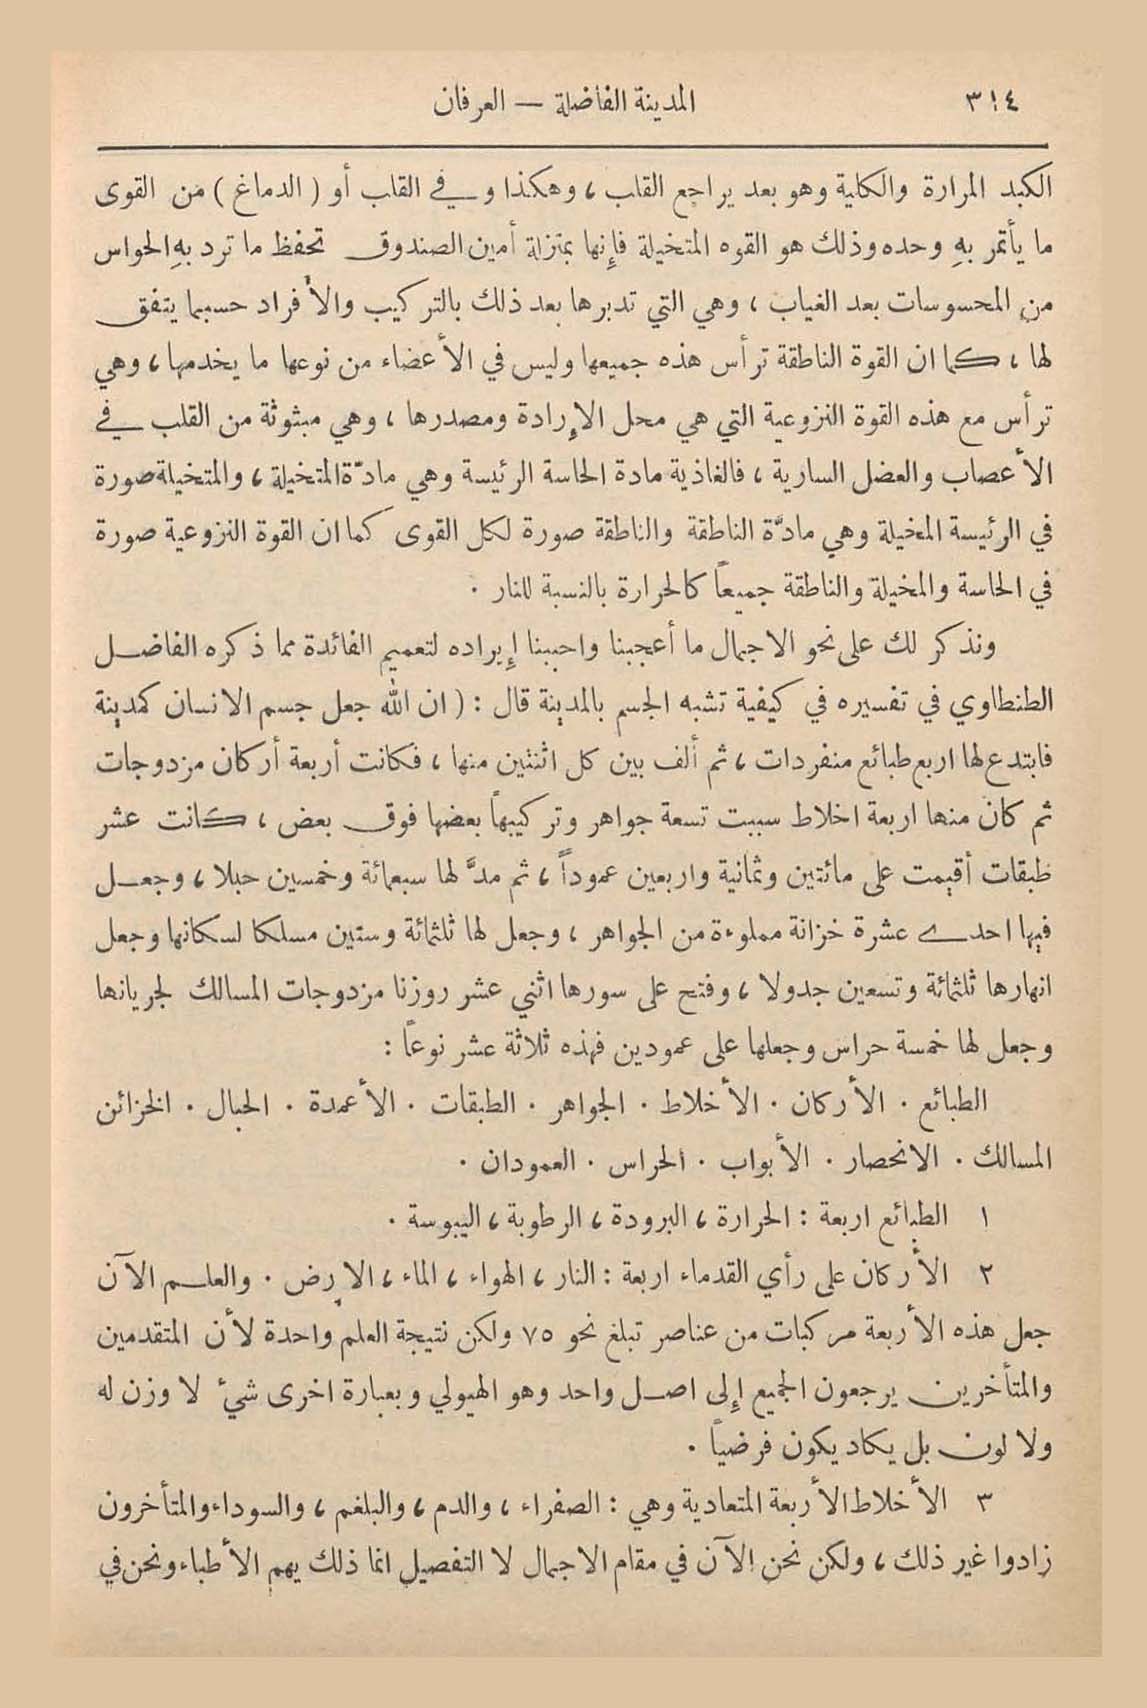 ٣١٤ المدينة الفاضلة — العرفان
الكبد المرارة والكلية وهو بعد يراجع القلب ، وهكذا وفي القلب أو ( الدماغ ) من القوى
ما يأتمر بهِ وحده وذلك هو القوه المتخيلة فإنها بمنزلة أمين الصندوق تحفظ ما ترد بهِ الحواس
من المحسوسات بعد الغياب ، وهي التي تدبرها بعد ذلك بالتركيب والأفراد حسبما يتفق
لها ، كما ان القوة الناطقة ترأس هذه جميعها وليس في الأعضاء من نوعها ما يخدمها ، وهي
ترأس مع هذه القوة النزوعية التي هي محل الإرادة ومصدرها ، وهي مبثوثة من القلب في
الأعصاب والعضل السارية ، فالغاذية مادة الحاسة الرئيسة وهي مادّة المتخيلة ، والمتخيلة صورة
في الرئيسة المخيلة وهي مادَّة الناطقة والناطقة صورة لكل القوى كما ان القوة النزوعية صورة
في الحاسة والمخيلة والناطقة جميعاً كالحرارة بالنسبة للنار .
ونذكر لك على نحو الاجمال ما أعجبنا واحببنا إيراده لتعميم الفائدة مما ذكره الفاضل
الطنطاوي في تفسيره في كيفية تشبه الجسم بالمدينة قال : ( ان الله جعل جسم الانسان كمدينة
فابتدع لها اربع طبائع منفردات ، ثم ألف بين كل اثنتين منها ، فكانت أربعة أركان مزدوجات
ثم كان منها اربعة اخلاط سببت تسعة جواهر وتركيبهاً بعضها فوق بعض ، كانت عشر
طبقات أقيمت على مائتين وثمانية واربعين عموداً ، ثم مدَّ لها سبعمائة وخمسين حبلا ، وجعل
فيها احدى عشرة خزانة مملوءة من الجواهر ، وجعل لها ثلثمائة وستين مسلكا لسكانها وجعل
انهارها ثلثمائة وتسعين جدولا ، وفتح على سورها اثني عشر روزنا مزدوجات المسالك لجريانها
وجعل لها خمسة حراس وجعلها على عمودين فهذه ثلاثة عشر نوعاً :
الطبائع . الأركان . الأخلاط . الجواهر . الطبقات . الأعمدة . الحبال . الخزائن
المسالك . الانحصار . الأبواب . الحراس . العمودان .
١ الطبائع اربعة : الحرارة ، البرودة ، الرطوبة ، اليبوسة .
٢ الأركان على رأي القدماء اربعة : النار ، الهواء ، الماء ، الارض . والعلم الآن
جعل هذه الأربعة مركبات من عناصر تبلغ نحو ٧٥ ولكن نتيجة العلم واحدة لأن المتقدمين
والمتأخرين يرجعون الجميع إلى اصل واحد وهو الهيولي وبعبارة اخرى شيء لا وزن له
ولا لون بل يكاد يكون فرضياً .
٣ الأخلاط الأربعة المتعادية وهي : الصفراء ، والدم ، والبلغم ، والسوداء والمتأخرون
زادوا غير ذلك ، ولكن نحن الآن في مقام الاجمال لا التفصيل انما ذلك يهم الأطباء ونحن في